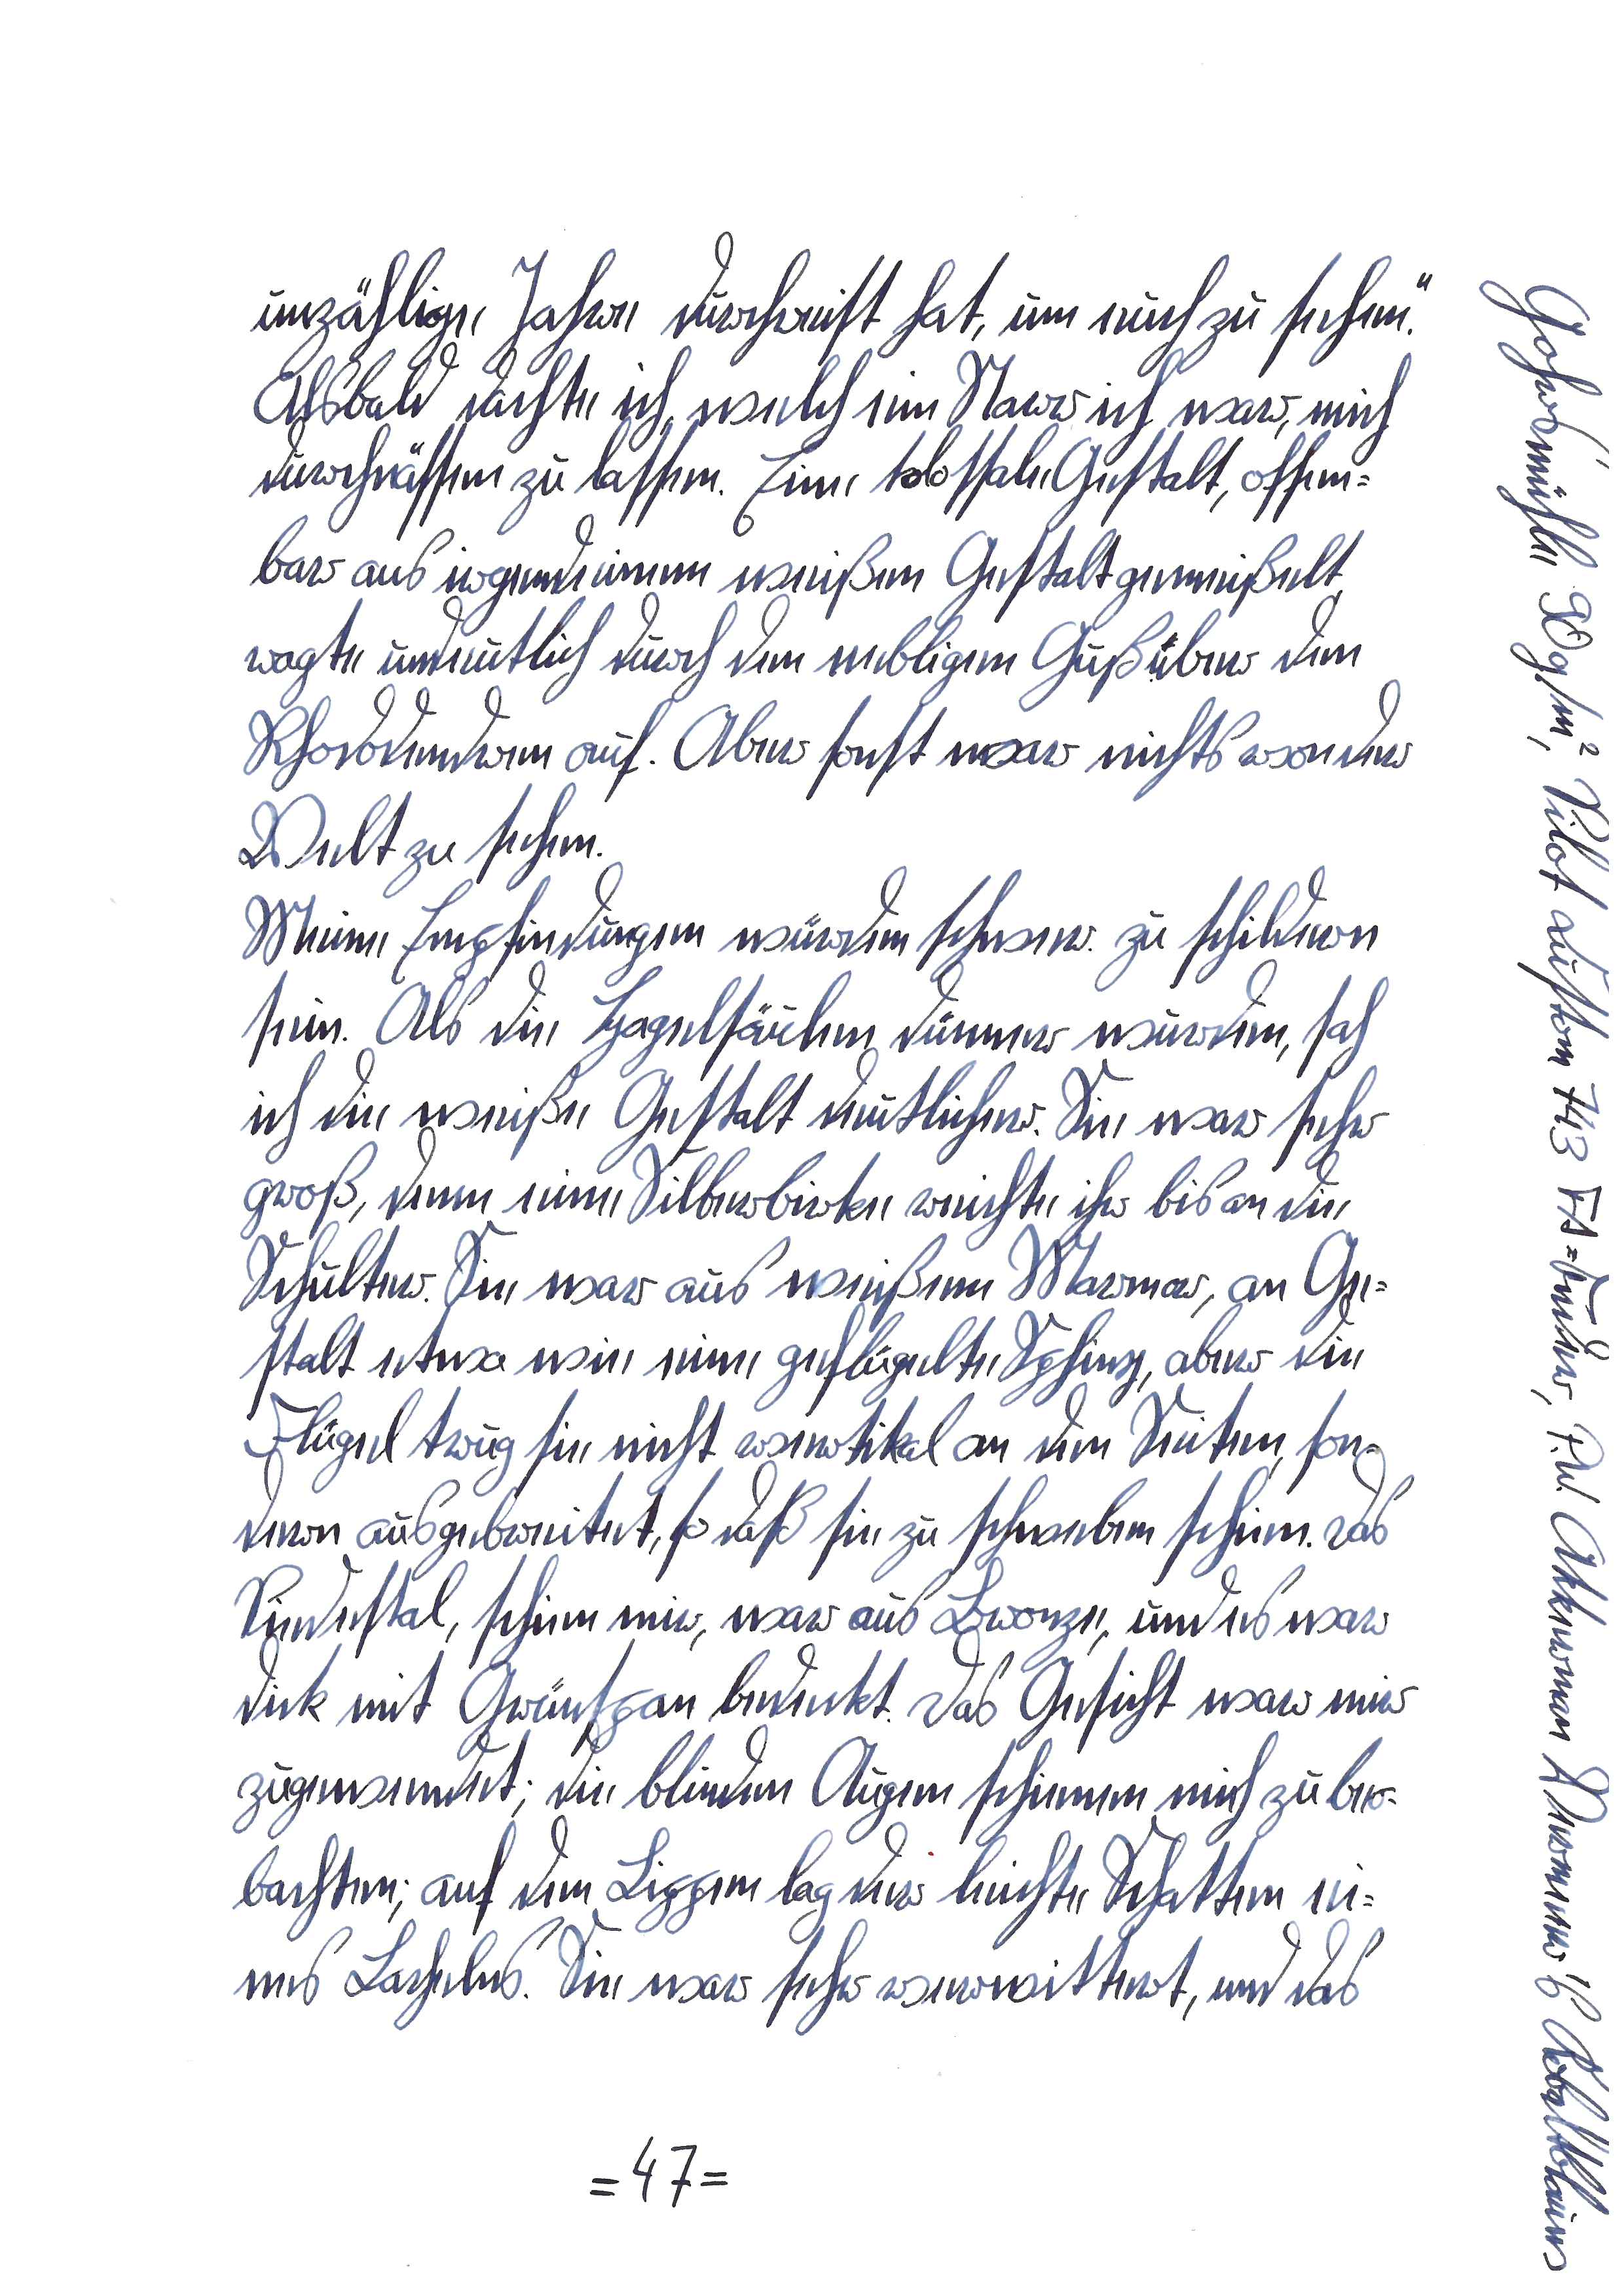 unzählige Jahre durchreist hat, um euch zu sehen."
Alsbald dachte ich, welch ein Narr ich war, mich
durchnässen zu lassen. Eine kolossale Gestalt, offen=
bar aus irgendeinem weißen Gestalt gemeißelt,
ragte undeutlich durch den nebligen Guß über den
Rhododendren auf. Aber sonst war nichts von der
Welt zu sehen.
Meine Empfindungen würden schwer zu schildern
sein. Als die Hagelsäulen dünner wurden, sah
ich die weiße Gestalt deutlicher. Sie war sehr
groß, denn eine Silberbirke reichte ihr bis an die
Schulter. Sie war aus weißem Marmor, an Ge=
stalt etwa wie eine geflügelte Sphinx, aber die
Flügel trug sie nicht vertikal an den Seiten, son=
dern ausgebreitet, so daß sie zu schweben schien. Das
Piedestal, schien mir, war aus Bronze, und es war
dick mit Grünspan bedeckt. Das Gesicht war mir
zugewendet; die blinden Augen schienen mich zu beo=
bachten; auf den Lippen lag der leichte Schatten ei=
nes Lächelns. Sie war sehr verwittert, und das
=47=
Gohrsmühle 90g/m², Pilot Custom 743 FA=Feder, P.W. Akkerman Diamine